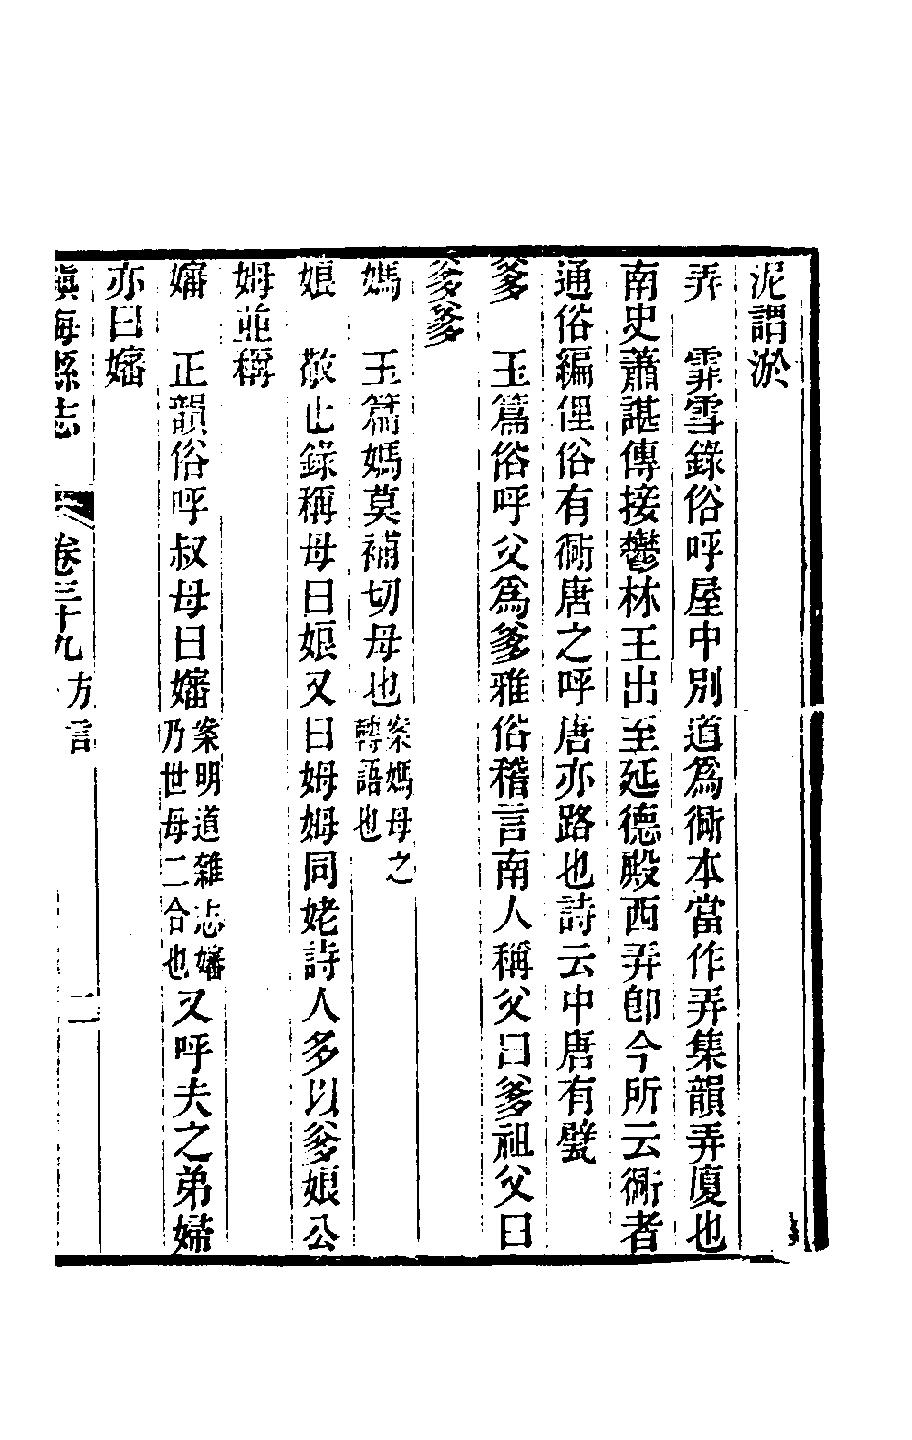 泥謂淤
弄　霏雪錄俗呼屋中別道爲衖本當作弄集韻弄廈也
南史蕭諶傳接鬱林王出至延德殿西弄卽今所云衖者
通俗編俚俗有衖唐之呼唐亦路也詩云中唐有甓
爹　玉篇俗呼父爲爹雅俗稽言南人稱父曰爹祖父曰
爹爹
媽　玉篇媽莫補切母也案媽母之轉語也
娘　敬止錄稱母曰娘又曰姆姆同姥詩人多以爹娘公
姆並稱
嬸　正韻俗呼叔母曰嬸案明道雜志嬸乃世母二合也又呼夫之弟婦
亦曰嬸
鎭海縣志　卷三十九　方言　二